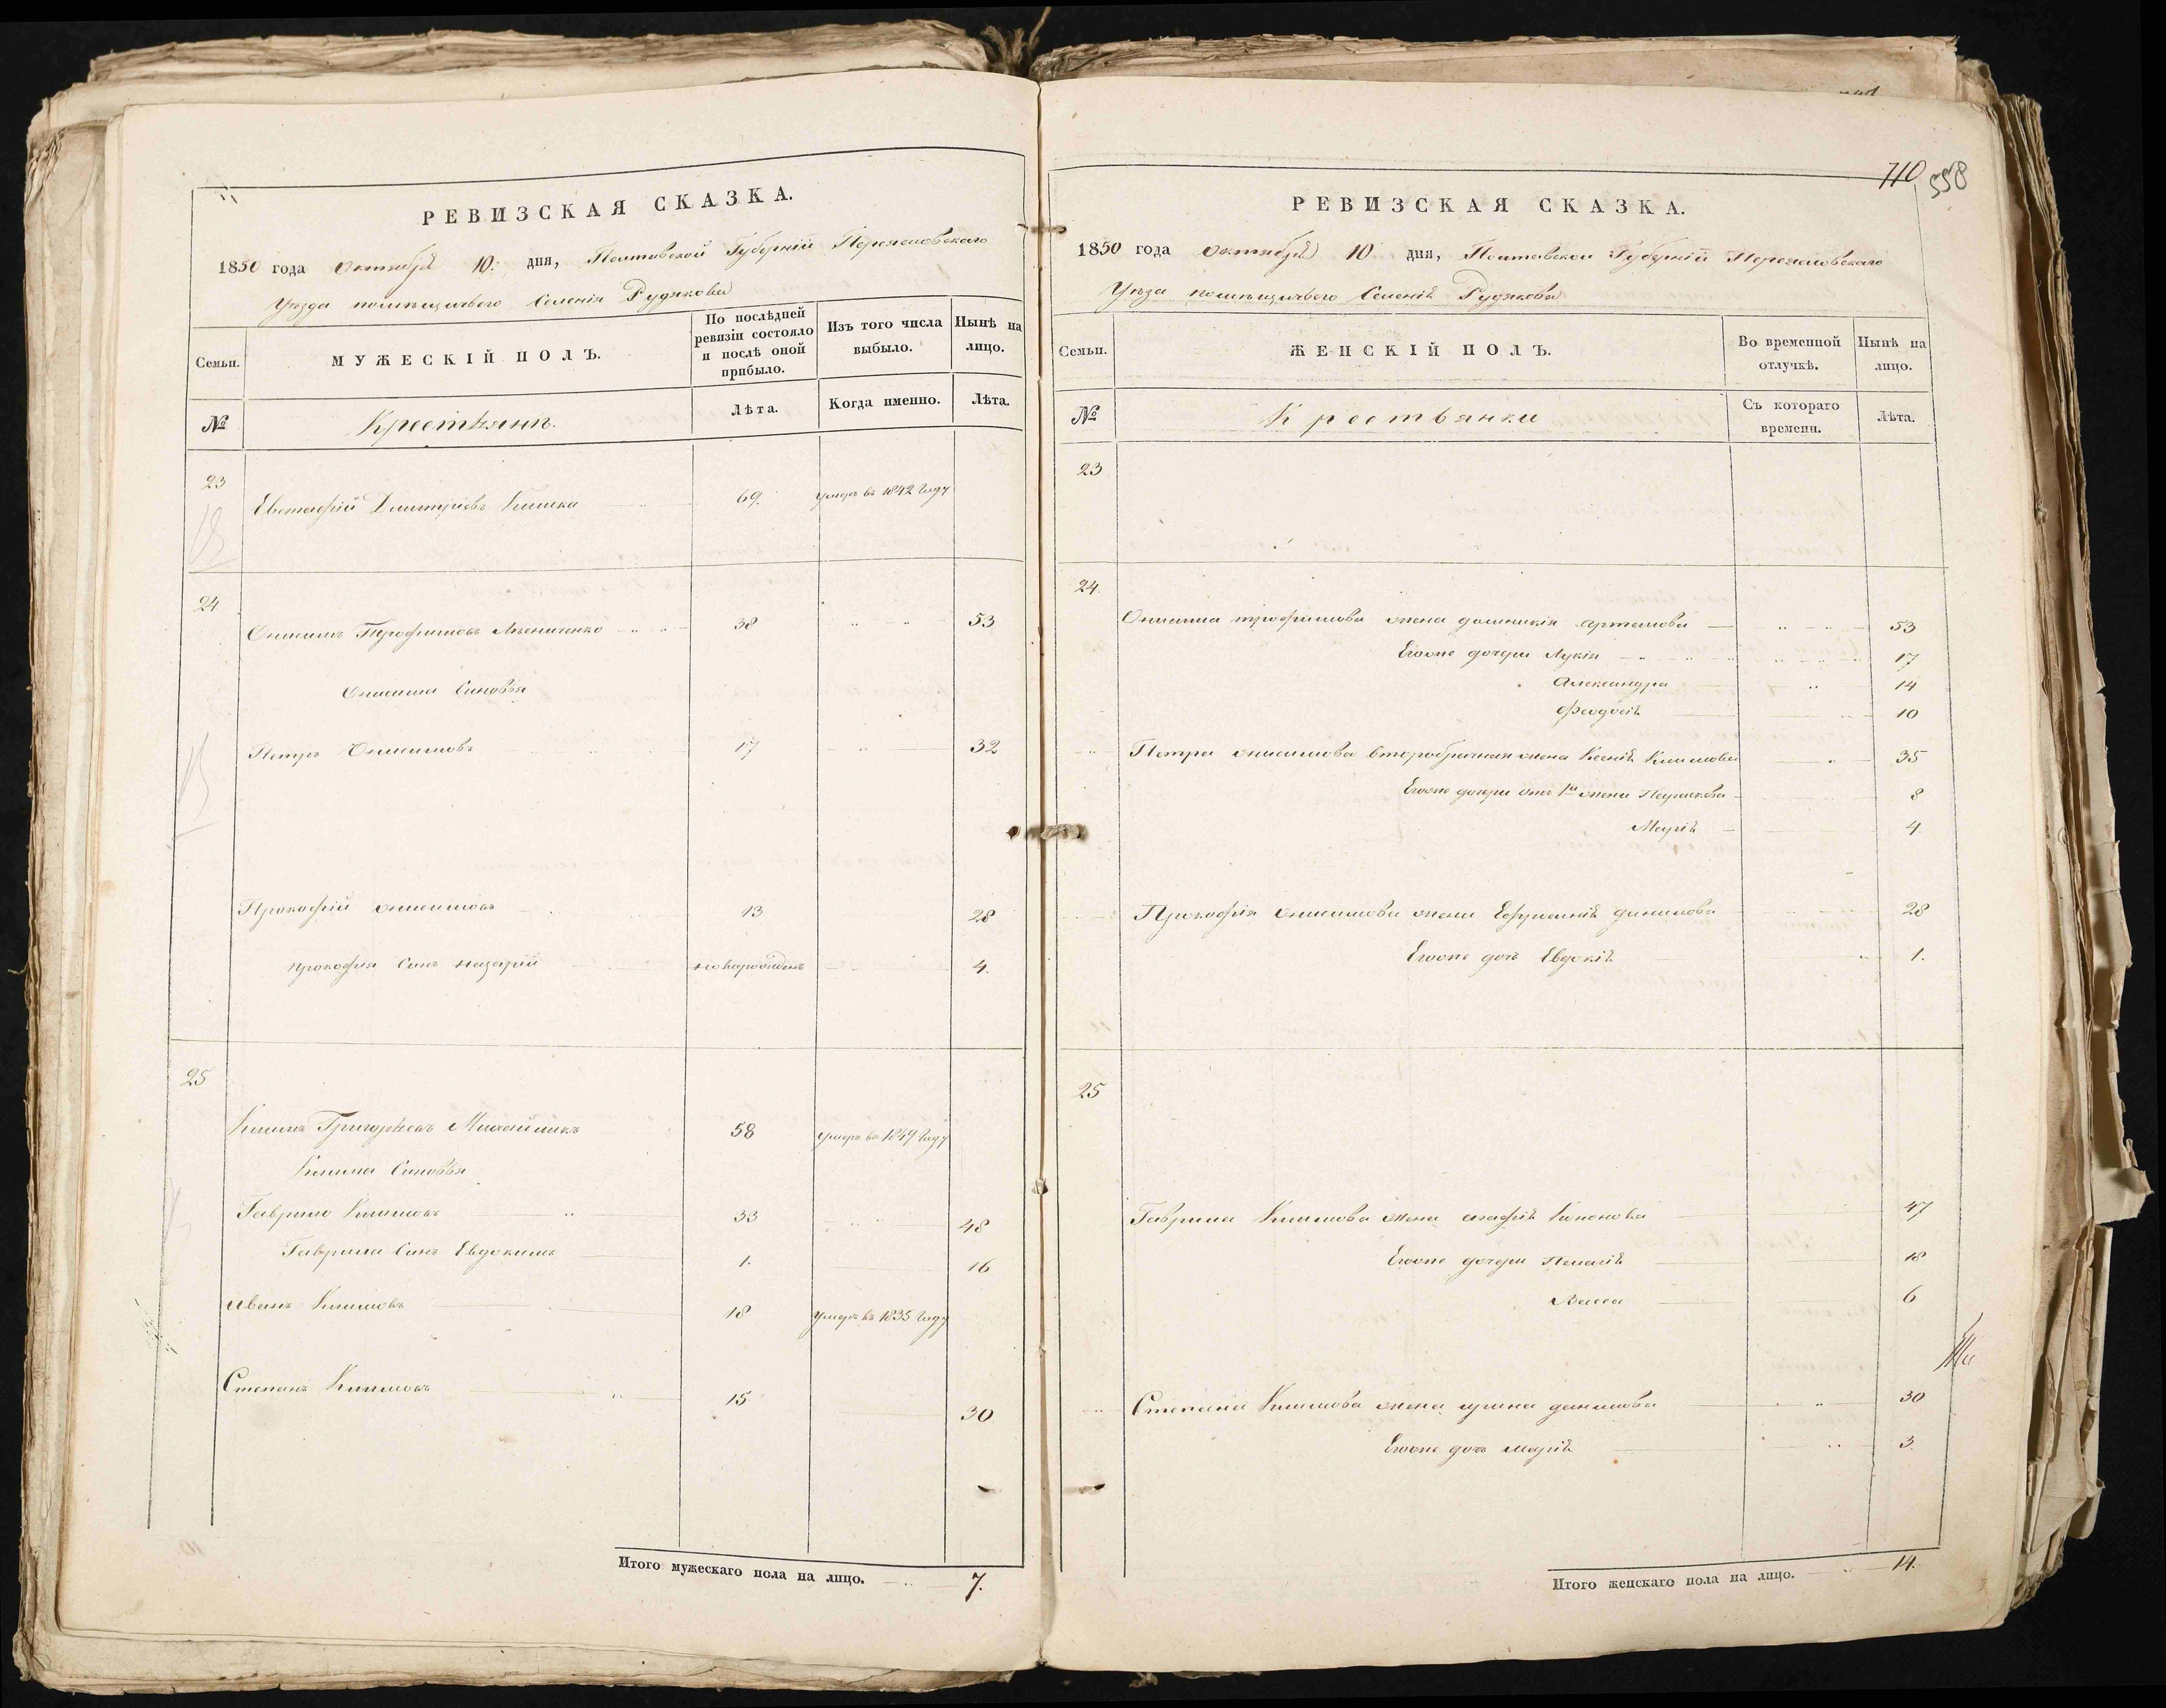 РЕВИЗСКАЯ СКАЗКА.
1850 года Октября 10. дня, Полтавской Губерніи Переяславского
Уѣзда помѣщичьего Селенія Рудякова
Семьи. МУЖЕСКІЙ ПОЛЪ. По послѣдней ревизіи состояло и послѣ оной прибыло. Изъ того числа выбыло. Нынѣ на лицо.
№ Крестьянъ. Лѣта. Когда именно. Лѣта.
23
Евстафій Дмитріевъ Кишка 69. умеръ въ 1842 году
24
Онисимъ Трофимовъ 38 53
Онисима Синовья
Петръ Онисимовъ 17 32
Прокофій Онисимовъ 13 28
Прокофія Синъ Назарій новорожденъ 4.
25
Климъ Григорьевъ Михайликъ 58 умеръ въ 1849 году
Клима Синовья
Гаврило Климовъ 33 48
Гаврила Синъ Евдокимъ 1. 16
Иванъ Климовъ 18 умеръ въ 1835 году
Степанъ Климовъ 15 30
Итого мужескаго пола на лицо. 7.
710 558
РЕВИЗСКАЯ СКАЗКА.
1850 года Октября 10 дня, Полтавской Губерніи Переяславского
Уѣзда помѣщичьего Селенія Рудякова
Семьи. ЖЕНСКІЙ ПОЛЪ. Во временной отлучкѣ. Нынѣ на лицо.
№ Крестьянки Съ котораго времени. Лѣта.
23
24
Онисима трофимова жена домникія артемова 53
Егоже дочери Лукія 17
Александра 14
Феодосія 10
Петра онисимова второбрачная жена Ксенія Климова 35
Егоже дочери отъ 1й жени Парасковія 8
Марія 4.
Прокофія Онисимова жена Ефросинія данилова 28
Егоже дочь Евдокія 1.
25
Гаврила Климова жена агафія Кононова 47
Егоже дочери Пелагія 18
Васса 6
Степана Климова жена ирина данилова 30
Егоже дочь Марія 3.
Итого женскаго пола на лицо. 14.